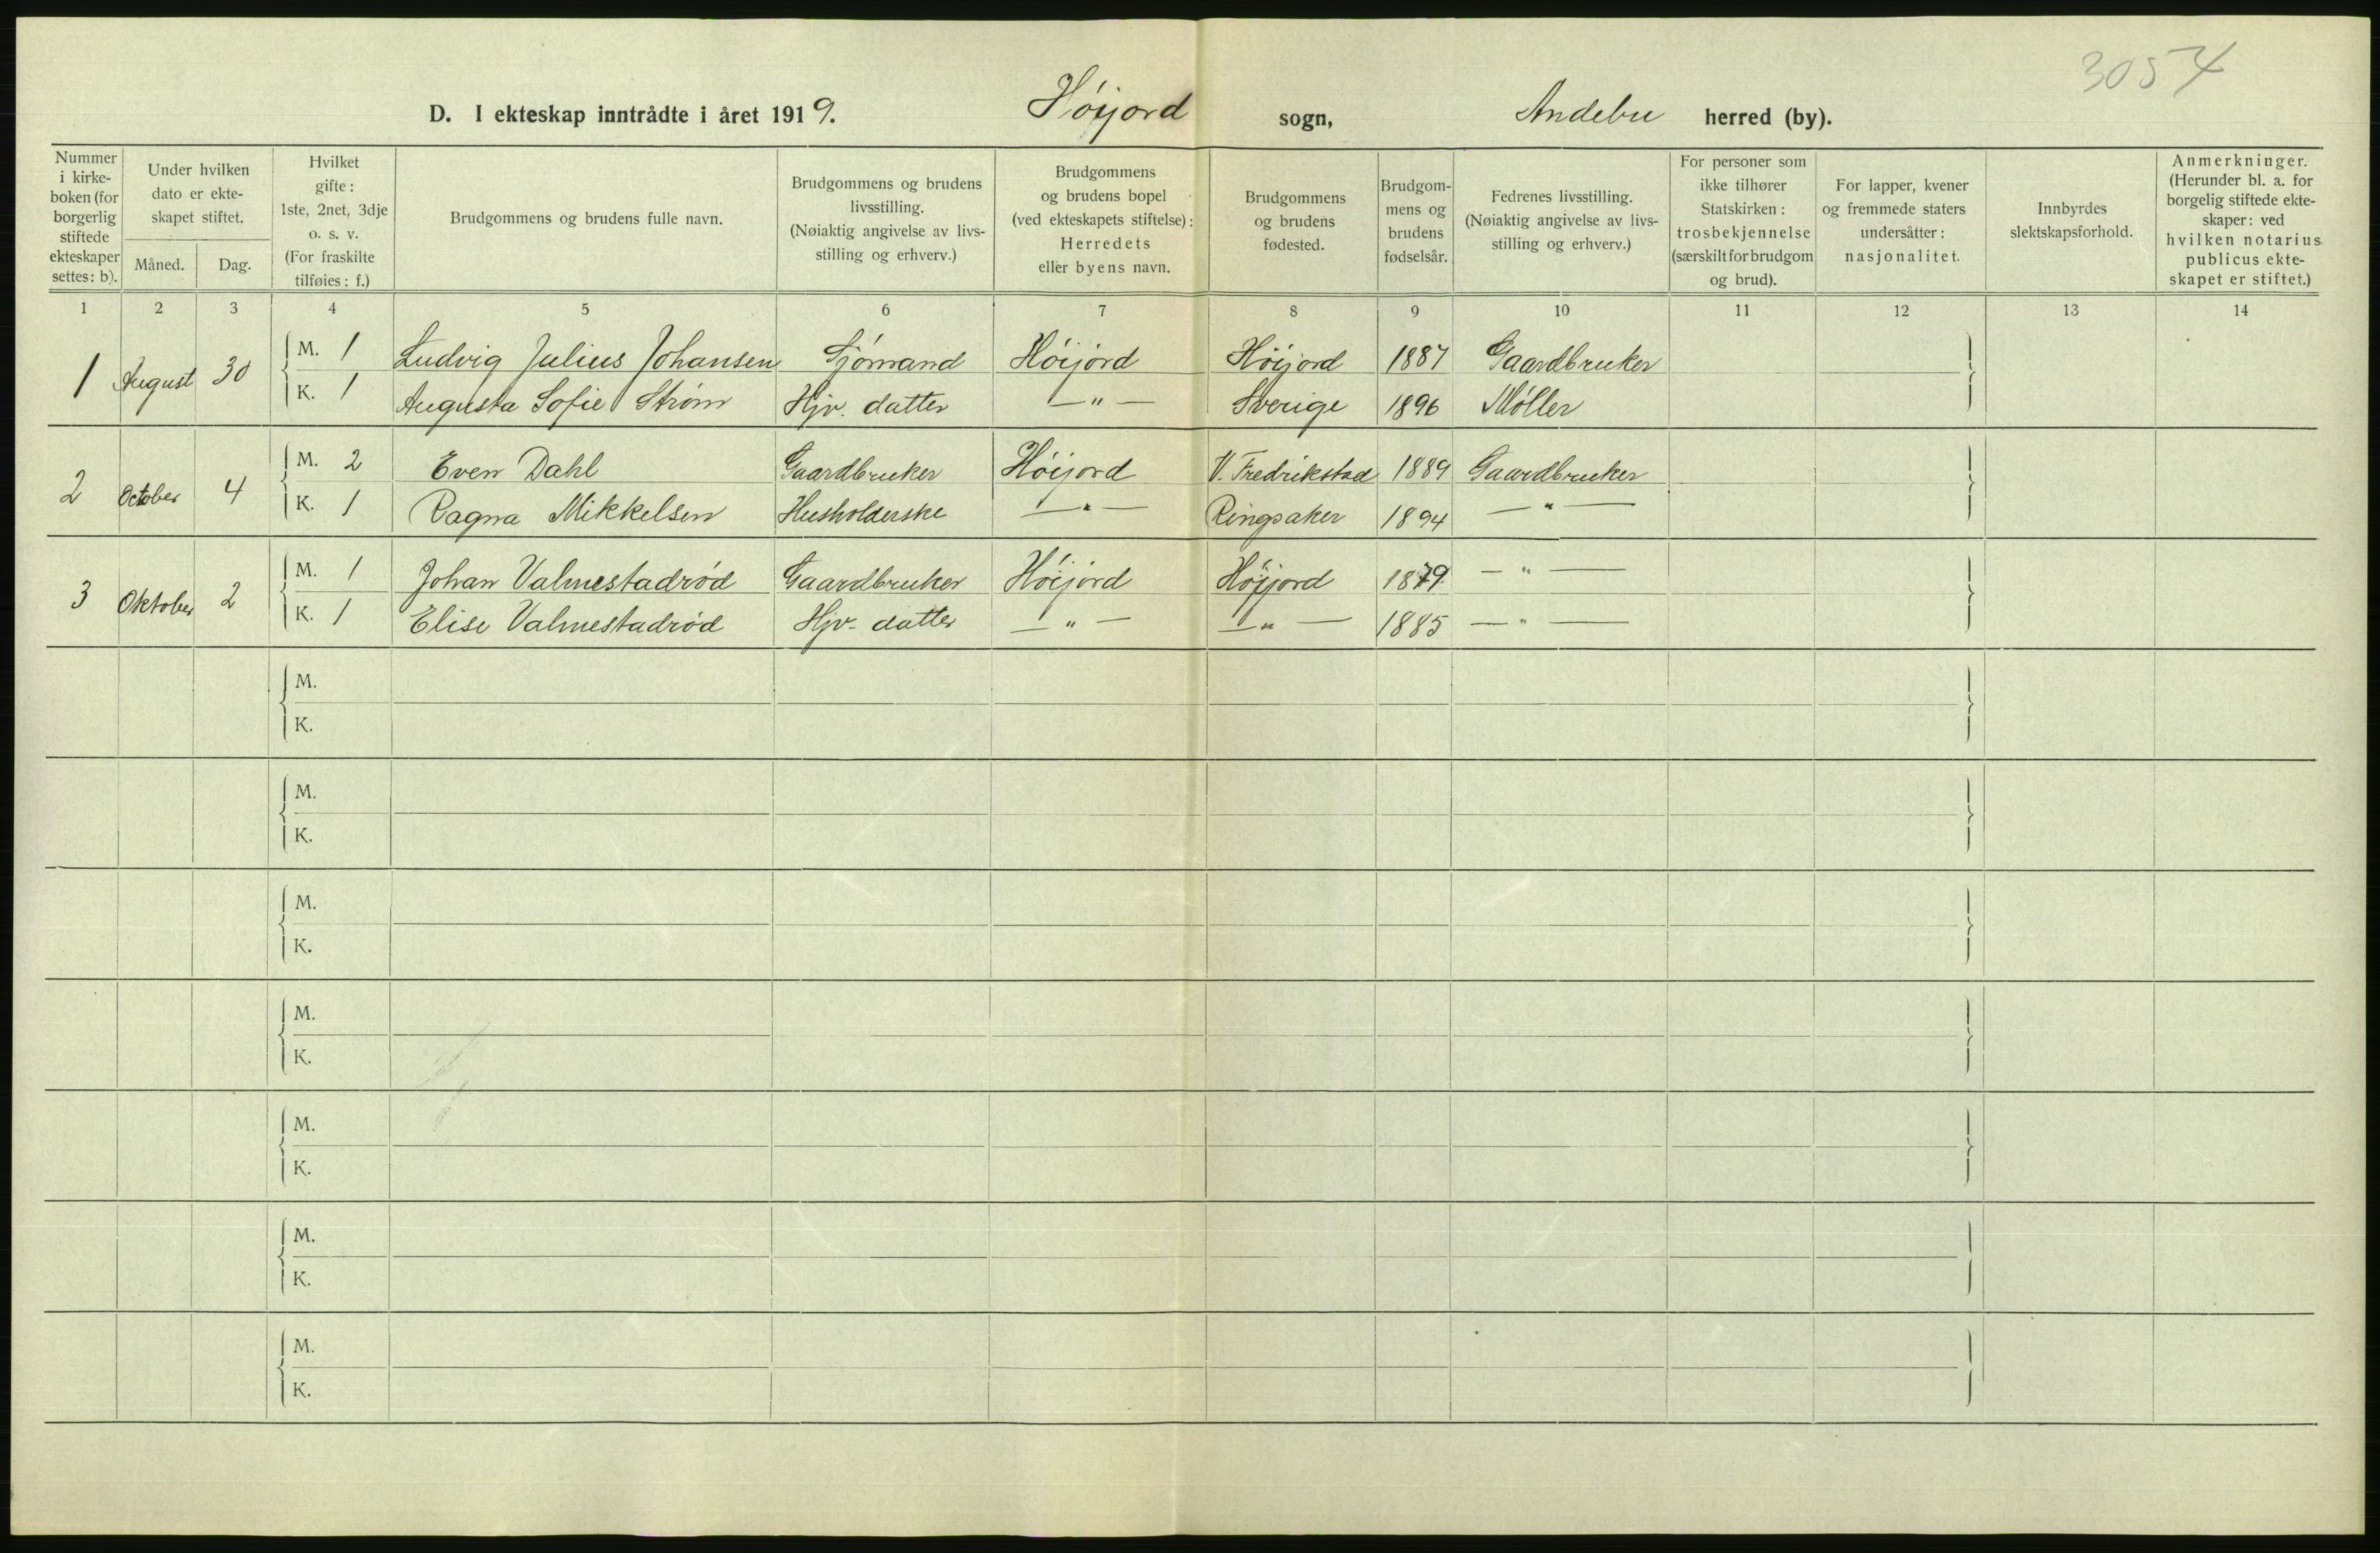 3054
D. I ekteskap inntrådte i året 1919. Höijord sogn, Andebu herred (by).
Nummer i kirke- boken (for borgerlig stiftede ekteskaper settes: b).
Under hvilken dato er ekte- skapet stiftet.
Måned. Dag.
Hvilket gifte: 1ste, 2net, 3dje o. s. v. (For fraskilte tilføies: f.)
Brudgommens og brudens fulle navn.
Brudgommens og brudens livsstilling. (Nøiaktig angivelse av livs- stilling og erhverv.)
Brudgommens og brudens bopel (ved ekteskapets stiftelse): Herredets eller byens navn.
Brudgommens og brudens fødested.
Brudgom- mens og brudens fødselsår.
Fedrenes livsstilling. (Nøiaktig angivelse av livs- stilling og erhverv.)
For personer som ikke tilhører Statskirken: trosbekjennelse (særskilt for brudgom og brud).
For lapper, kvener og fremmede staters undersåtter: nasjonalitet.
Innbyrdes slektskapsforhold.
Anmerkninger. (Herunder bl. a. for borgelig stiftede ekte- skaper: ved hvilken notarius publicus ekte- skapet er stiftet.)
1 2 3 4 5 6 7 8 9 10 11 12 13 14
1 August 30 M. 1 Ludvig Julius Johansen Sjömand Höijord Höijord 1887 Gaardbruker
K. 1 Augusta Sofie Strøm Hjv. datter — " — Sverige 1896 Møller
2 October 4 M. 2 Even Dahl Gaardbruker Höijord V. Fredrikstad 1889 Gaardbruker
K. 1 Ragna Mikkelsen Husholderske — " — Ringsaker 1894 — " —
3 Oktober 2 M. 1 Johan Valmestadrød Gaardbruker Höijord Höijord 1879 — " —
K. 1 Elise Valmestadrød Hjv. datter — " — — " — 1885 — " —
M.
K.
M.
K.
M.
K.
M.
K.
M.
K.
M.
K.
M.
K.